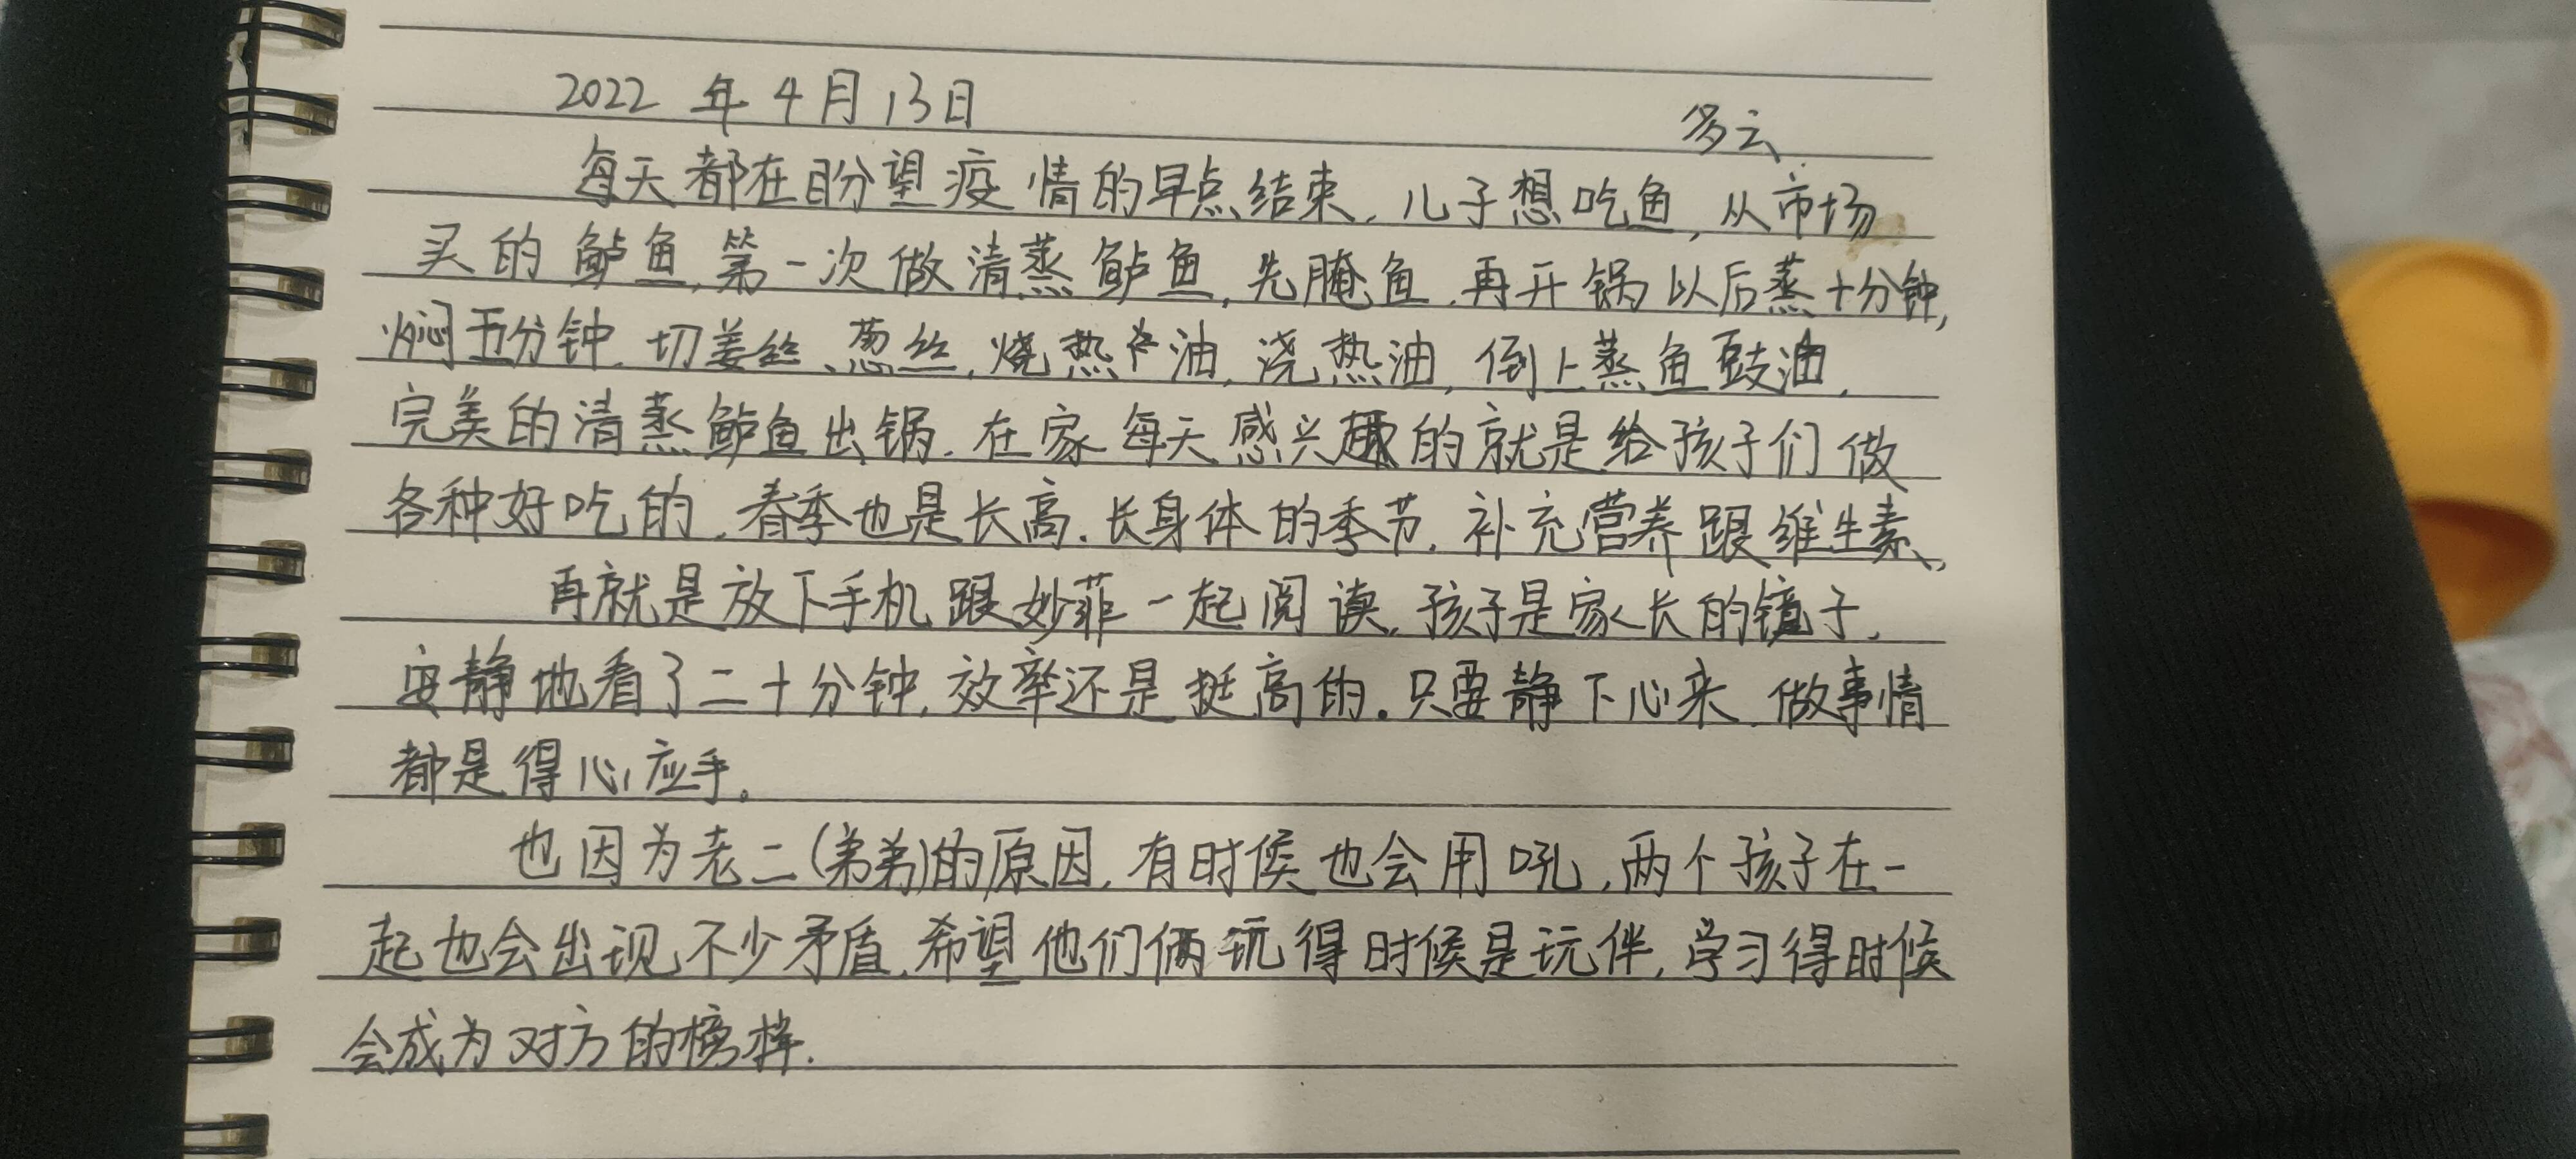 2022 年 4 月 13日
多云
每天都在盼望疫情的早点结束.儿子想吃鱼,从市场
买的鲈鱼,第一次做清蒸鲈鱼,先腌鱼.再开锅以后蒸十分钟,
焖五分钟.切姜丝、葱丝,烧热油,浇热油,倒上蒸鱼豉油,
完美的清蒸鲈鱼出锅.在家每天感兴趣的就是给孩子们做
各种好吃的,春季也是长高.长身体的季节,补充营养跟维生素,
再就是放下手机跟妙菲一起阅读,孩子是家长的镜子,
安静地看了二十分钟,效率还是挺高的。只要静下心来,做事情
都是得心应手。
也因为老二(弟弟)的原因,有时候也会用吼,两个孩子在一
起也会出现不少矛盾,希望他们俩玩得时候是玩伴,学习得时候
会成为对方的榜样.